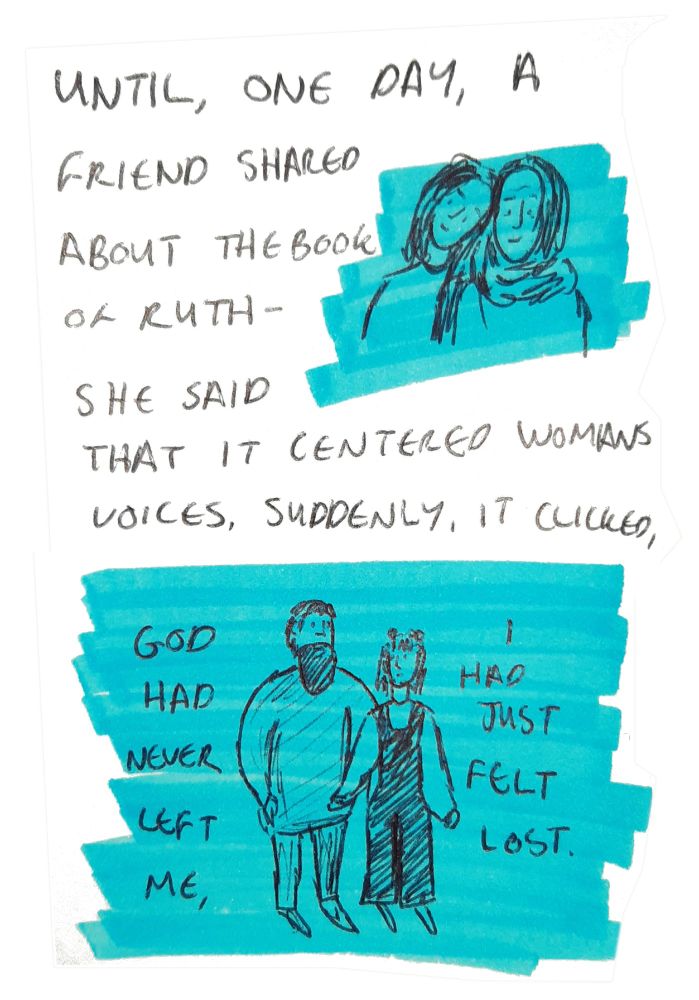 UNTIL, ONE DAY, A
FRIEND SHARED
ABOUT THE BOOK
OF RUTH-
SHE SAID
THAT IT CENTERED WOMANS
VOICES. SUDDENLY, IT CLICKED,
GOD
HAD
NEVER
LEFT
ME,
I
HAD
JUST
FELT
LOST.